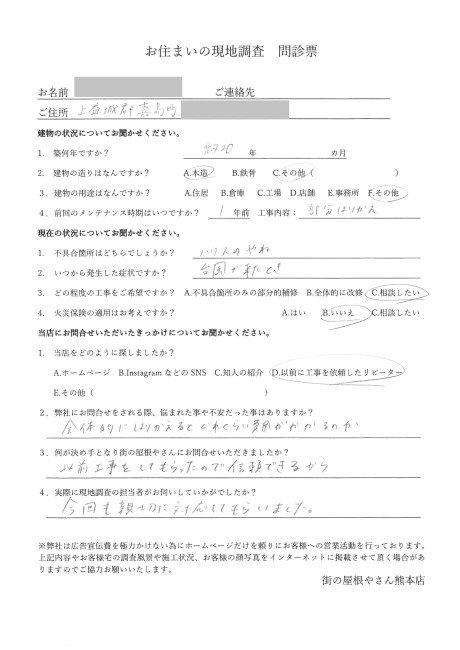 お住まいの現地調査　問診票
お名前　　　　　　　　　　ご連絡先
ご住所　上益城郡嘉島町
建物の状況についてお聞かせください。
1.　築何年ですか？　約20　年　　　　カ月
2.　建物の造りはなんですか？　A.木造　B.鉄骨　C.その他（　　　　　　）
3．建物の用途はなんですか？　A.住居　B.倉庫　C.工場　D.店舗　E.事務所　F.その他
4．前回のメンテナンス時期はいつですか？　1　年前　工事内容：　部分はりかえ
現在の状況についてお聞かせください。
1.　不具合箇所はどちらでしょうか？　ハウスのやね
2.　いつから発生した症状ですか？　台風が来たとき
3.　どの程度の工事をご希望ですか？　A.不具合箇所のみの部分的補修　B.全体的に改修　C.相談したい
4.　火災保険の適用はお考えですか？　A.はい　B.いいえ　C.相談したい
当店にお問合せいただいたきっかけについてお聞かせください。
1.　当店をどのように探しましたか？
A.ホームページ　B.InstagramなどのSNS　C.知人の紹介　D.以前に工事を依頼したリピーター
E.その他（　　　　　　　　　　　　　　　　　　　）
2．弊社にお問合せをされる際、悩まれた事や不安だった事はありますか？
全体的にはりかえるとどれくらい費用がかかるのか
3．何が決め手となり街の屋根やさんにお問合せいただきましたか？
以前工事をしてもらったので信頼できるから
4．実際に現地調査の担当者がお伺いしていかがでしたか？
今回も親切に対応してもらいました。
※弊社は広告宣伝費を極力かけない為にホームページだけを頼りにお客様への営業活動を行っております。
上記内容やお客様宅の調査風景や施工状況、お客様の顔写真をインターネットに掲載させて頂く場合があ
りますのでご協力お願いいたします。
街の屋根やさん熊本店